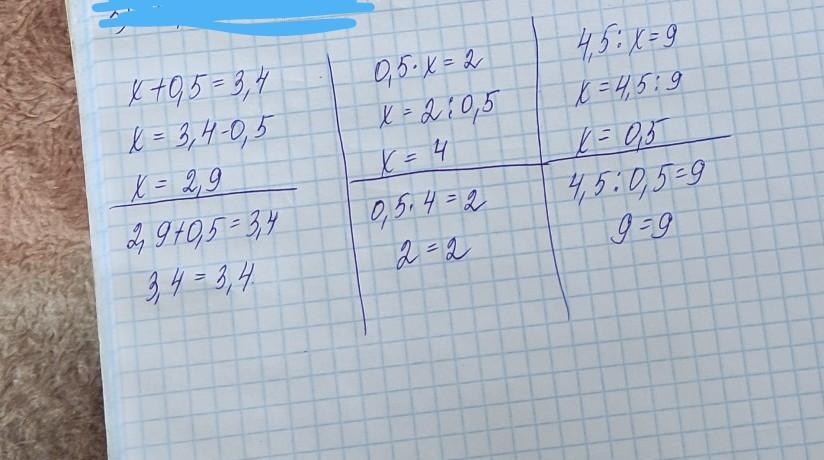 x+0,5=3,4
x = 3,4-0,5
x = 2,9
2,9+0,5=3,4
3,4 = 3,4.
0,5·x=2
x = 2:0,5
x = 4
0,5·4=2
2=2
4,5:x=9
x=4,5:9
x=0,5
4,5:0,5=9
9=9